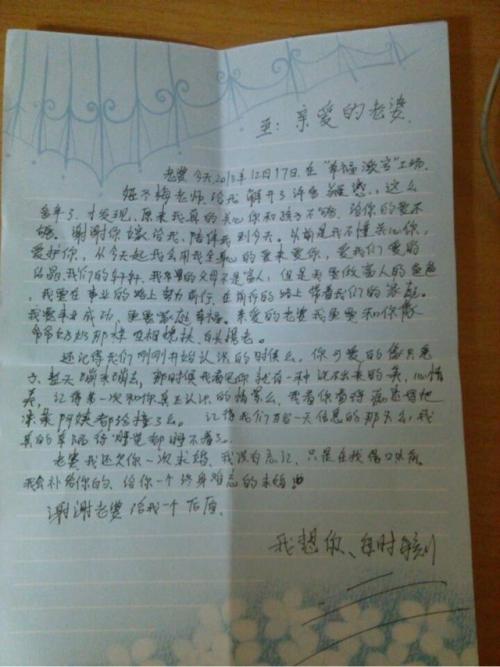 至：亲爱的老婆
老婆今天2013年12月17日.在“幸福激言”工场.
经不梅老师给我解开了许多疑惑，这么
多年了.才发现，原来我真的关心你和孩子不够.给你的爱不
够.谢谢你嫁给我、陪伴我到今天。以前是我不懂关心你,
爱护你，从今天起我会用我全身心的爱来爱你，爱我们爱的
结晶我们的轩轩。我希望的父母不是富人，但是我要做富人的爸爸
，我要在事业的路上努力前行.在前行的路上带着我们的家庭。
我要事业成功、更要家庭幸福。亲爱的老婆我更要和你像
爷爷奶奶那样互相搀扶、白头偕老。
还记得我们刚刚开始认识的时候么，你可爱的像只兔
子.整天蹦来蹦去，那时候我看见你就有一种说不出来的美，心情
美，记得第一次和你真正认识的情景么，我看你看得
都给撞了么。记得我们有一天信息的那天么，我
真的幸福得睡觉都睡不着了。
老婆我还欠你一次求婚，我没有忘记、只是在我
我会补给你的、给你一个终身难忘的求婚
谢谢老婆给我一个
我想你、每时每刻